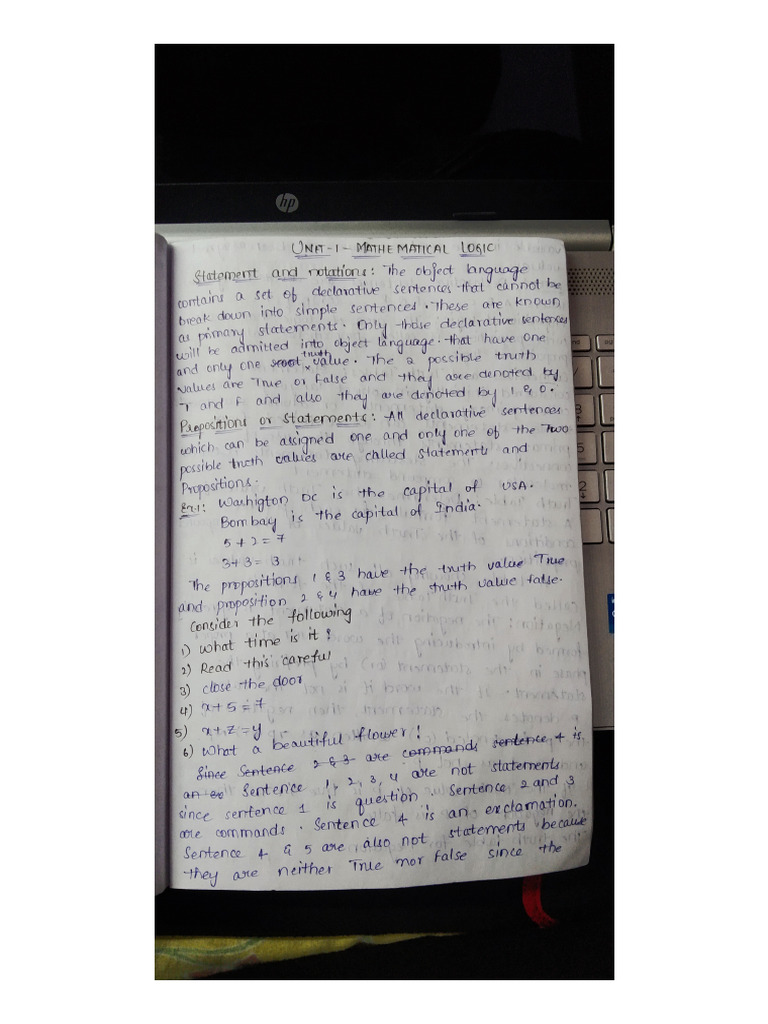 hp
UNIT-1 - MATHEMATICAL LOGIC
Statement and notations: The object language
contains a set of declarative sentences that cannot be
break down into simple sentences. These are known
as primary statements. Only those declarative sentences
will be admitted into object language. that have one
and only one truth value. The 2 possible truth
values are True or False and they are denoted by
T and F and also they are denoted by 1 & 0.
Propositions or Statements: All declarative sentences
which can be assigned one and only one of the Two
possible truth values are called statements and
Propositions.
Ex-1: Washigton DC is the capital of USA.
Bombay is the capital of India.
5+2=7
3+3=3
The propositions 1 & 3 have the truth value True
and proposition 2 & 4 have the truth value false.
Consider the following
1) What time is it?
2) Read this careful
3) close the door
4) x+5=7
5) x+z=y
6) What a beautiful flower!
Since Sentence 2 & 3 are commands sentence 4 is
Sentence 1, 2, 3, 4 are not statements
since sentence 1 is question. Sentence 2 and 3
are commands. Sentence 4 is an exclamation.
Sentence 4 & 5 are also not statements because
they are neither True mor False since the